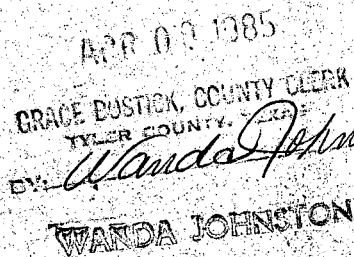 APR 09 1985
GRACE BOSTICK, COUNTY CLERK
TYLER COUNTY, TEXAS
BY: Wanda John
WANDA JOHNSTON